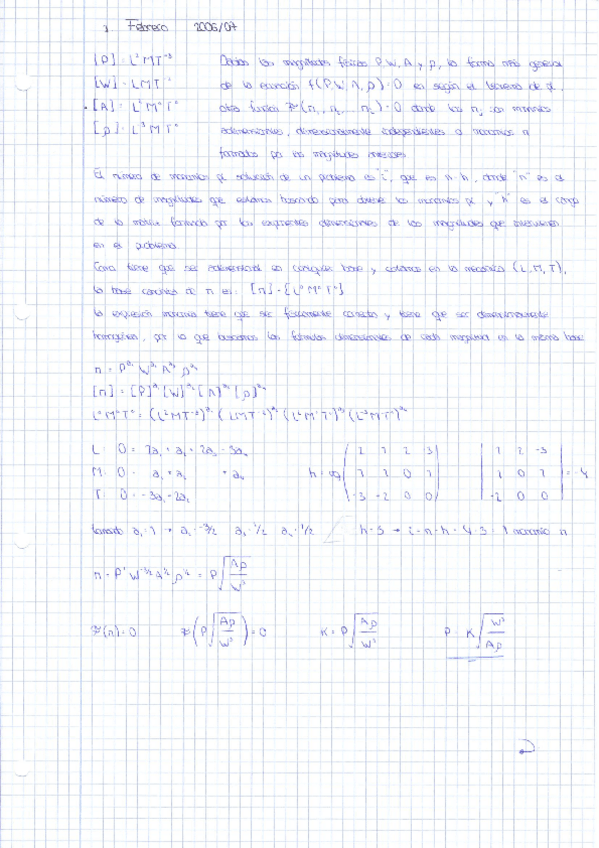 1. Febrero 2006/07
[P] = L² M T⁻³ Dadas las magnitudes físicas P, W, A, y ρ, la forma más general
[W] = L M T⁻² de la ecuación f(P, W, A, ρ) = 0 es según el teorema de π,
[A] = L² M⁰ T⁰ otra función (π₁, π₂, ... ) = 0 donde los son monomios
[ρ] = L⁻³ M T⁰ adimensionales, dimensionalmente independientes o monomios π
formados por las magnitudes
El número de monomios solución de un problema es "i", que es n-h, donde "n" es el
número de magnitudes que estamos para los monomios y "h" es el rango
de la matriz formada por los exponentes dimensionales de las magnitudes que intervienen
en el problema.
Como tiene que ser adimensional en cualquier base, y estamos en la mecánica (L, M, T),
la base de π es: [π] = [L⁰ M⁰ T⁰]
la expresión tiene que ser físicamente correcta y tiene que ser dimensionalmente
homogénea, por lo que buscamos las fórmulas dimensionales de cada magnitud en la misma base
π = P^a₁ W^a₂ A^a₃ ρ^a₄
[π] = [P]^a₁ [W]^a₂ [A]^a₃ [ρ]^a₄
L⁰ M⁰ T⁰ = (L² M T⁻³)^a₁ (L M T⁻²)^a₂ (L² M⁰ T⁰)^a₃ (L⁻³ M T⁰)^a₄
L: 0 = 2a₁ + a₂ + 2a₃ - 3a₄
M: 0 = a₁ + a₂ + a₄
T: 0 = -3a₁ - 2a₂
h = rg
2 1 2 -3
1 1 0 1
-3 -2 0 0
1 2 -3
1 0 1
-2 0 0
= -4
tomando a₁ = 1 → a₂ = -3/2 a₃ = 1/2 a₄ = 1/2 h = 3 → i = n - h = 4 - 3 = 1 monomio π
π = P¹ W^-3/2 A^1/2 ρ^1/2 = P √(Aρ/W³)
(π) = 0 (P √(Aρ/W³)) = 0 K = P √(Aρ/W³) P = K √(W³/Aρ)